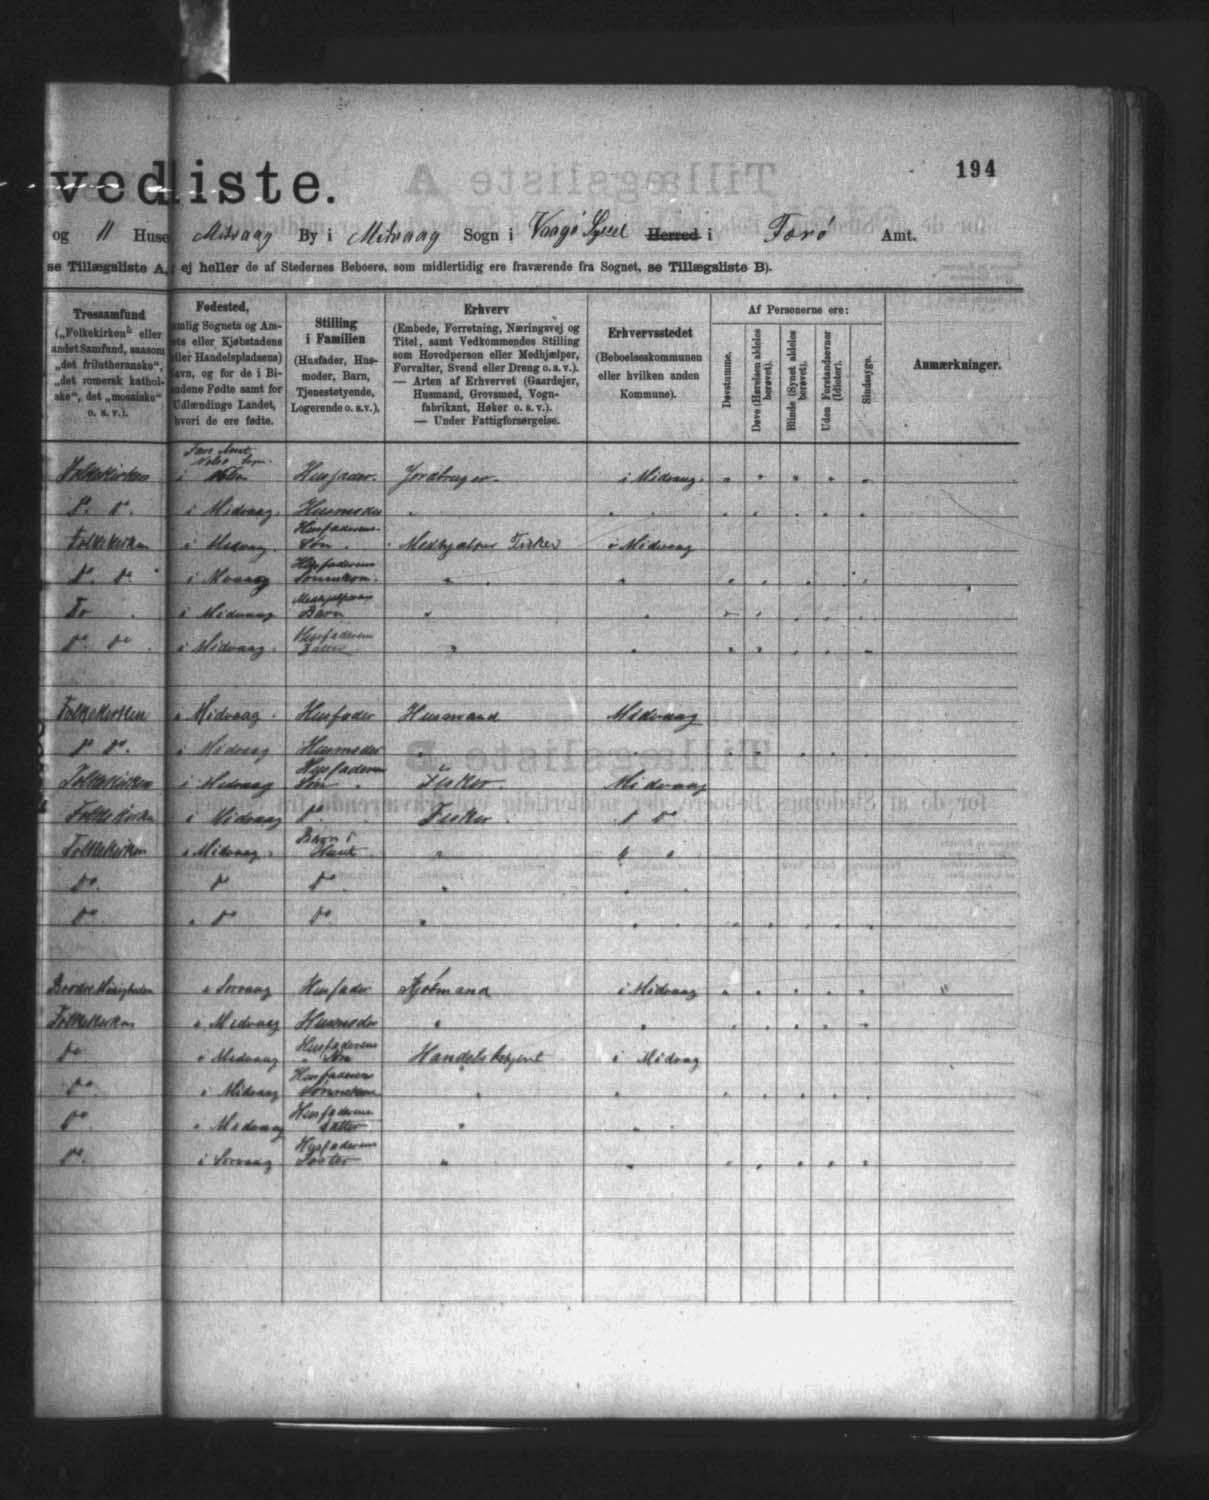 vedliste.
194
og 11 Huse Midvaag By i Midvaag Sogn i Vaagø Syssel Herred i Færø Amt.
se Tillægsliste A, ej heller de af Stedernes Beboere, som midlertidig ere fraværende fra Sognet, se Tillægsliste B).
Trossamfund
(„Folkekirken“ eller
andet Samfund, saasom
„det frilutheranske“,
„det romersk kathol-
ske“, det „mosaiske“
o. s. v.).
Fødested,
nemlig Sognets og Am-
ets eller Kjøbstadens
eller Handelspladsens)
Navn, og for de i Bi-
andene Fødte samt for
Udlændinge Landet,
hvori de ere fødte.
Stilling
i Familien
(Husfader, Hus-
moder, Barn,
Tjenestetyende,
Logerende o. s.v.).
Erhverv
(Embede, Forretning, Næringsvej og
Titel, samt Vedkommendes Stilling
som Hovedperson eller Medhjælper,
Forvalter, Svend eller Dreng o. s. v.).
— Arten af Erhvervet (Gaardejer,
Husmand, Grovsmed, Vogn-
fabrikant, Høker o. s. v.).
— Under Fattigforsørgelse.
Erhvervsstedet
(Beboelseskommunen
eller hvilken anden
Kommune).
Af Personerne ere:
Døvstumme.
Døve (Hørelsen aldeles
berøvet).
Blinde (Synet aldeles
berøvet).
Uden Forstandsevner
(Idioter).
Sindssyge.
Anmærkninger.
Folkekirken i Husfader. Jordbruger. i Midvaag.
do. do. i Midvaag. Husmoder "
Folkekirken i Midvaag. Husfaderens Søn. Medhjælper Fisker i Midvaag
do. do. i Husfaderens Sønnekone. "
Fo i Midvaag Barn "
do. do. i Midvaag. Husfaderens Datter "
Folkekirken i Midvaag. Husfader Husmand Midvaag
do do. i Midvaag Husmoder "
Folkekirken i Midvaag Husfaderens Søn. Fisker. Midvaag
Folkekirken i Midvaag do. Fisker. do do
Folkekirken i Midvaag. Barn i Huset. "
do. do do. "
do do do. "
i Sorvaag Husfader Kjøbmand i Midvaag
Folkekirken i Midvaag Husmoder "
do i Midvaag Husfaderens Søn Handelsbetjent i Midvaag
do. i Midvaag Husfaderens Sønnekone "
do. i Midvaag Husfaderens Datter "
do. i Sorvaag Husfaderens Søster "